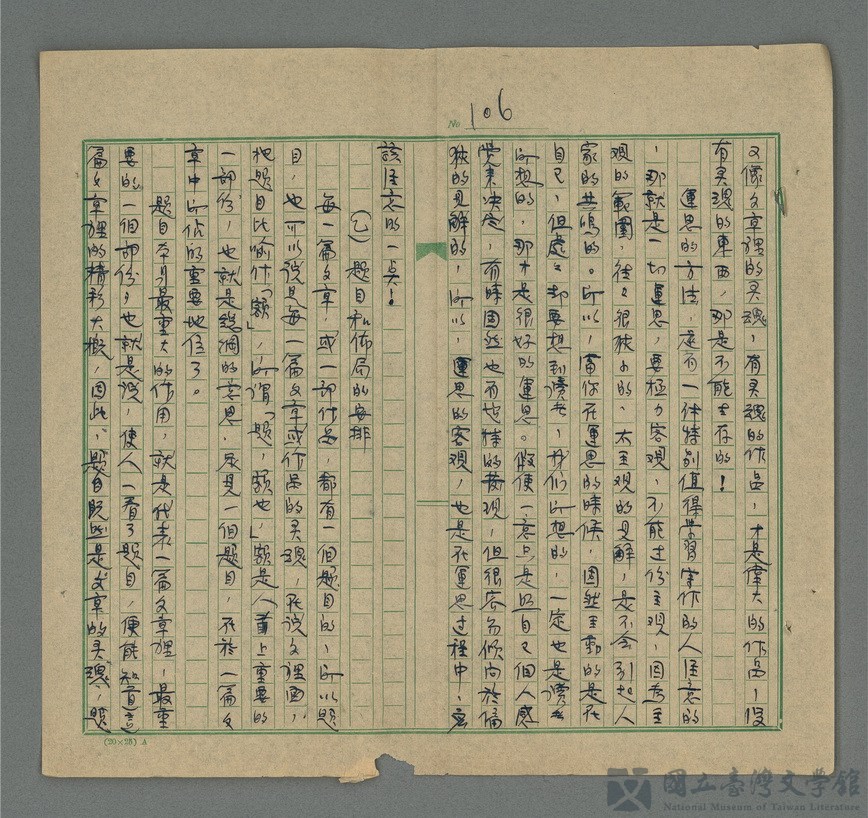 No 106
又像文章裡的灵魂，有灵魂的作品，才是偉大的作品，没
有灵魂的東西，那是不能生存的！
運思的方法，还有一件特别值得学習寫作的人注意的
，那就是一切運思，要極力客观，不能过份主观，因為主
观的範圍，往々很狭小的，太主观的見解，是不会引起人
家的共鳴的。所以，當你在運思的時候，固然主動的是在
自己，但處々却要想到讀者，我们所想的，一定也是讀者
所想的，那才是很好的運思。假使一意只是照自己個人感
覺來决定，有時固然也有独特的發現，但很容易倾向於偏
狭的見解的，所以，運思的客观，也是在運思过程中，应
該注意的一点！
(乙) 題目和佈局的安排
每一篇文章，或一部作品，都有一個題目的，所以題
目，也可以说是每一篇文章或作品的灵魂，在说文裡面，
把題目比喻作「額」，所謂「題，額也」額是人首上重要的
一部份，也就是總綱的意思，足見一個題目，在於一篇文
章中所佔的重要地位了。
題目本身最重大的作用，就是代表一篇文章裡，最重
要的一個部份，也就是说，使人一看了題目，便能知道这
篇文章裡的精彩大概，因此，題目既然是文章的灵魂，題
(20×25) A
國立臺灣文學館
National Museum of Taiwan Literature